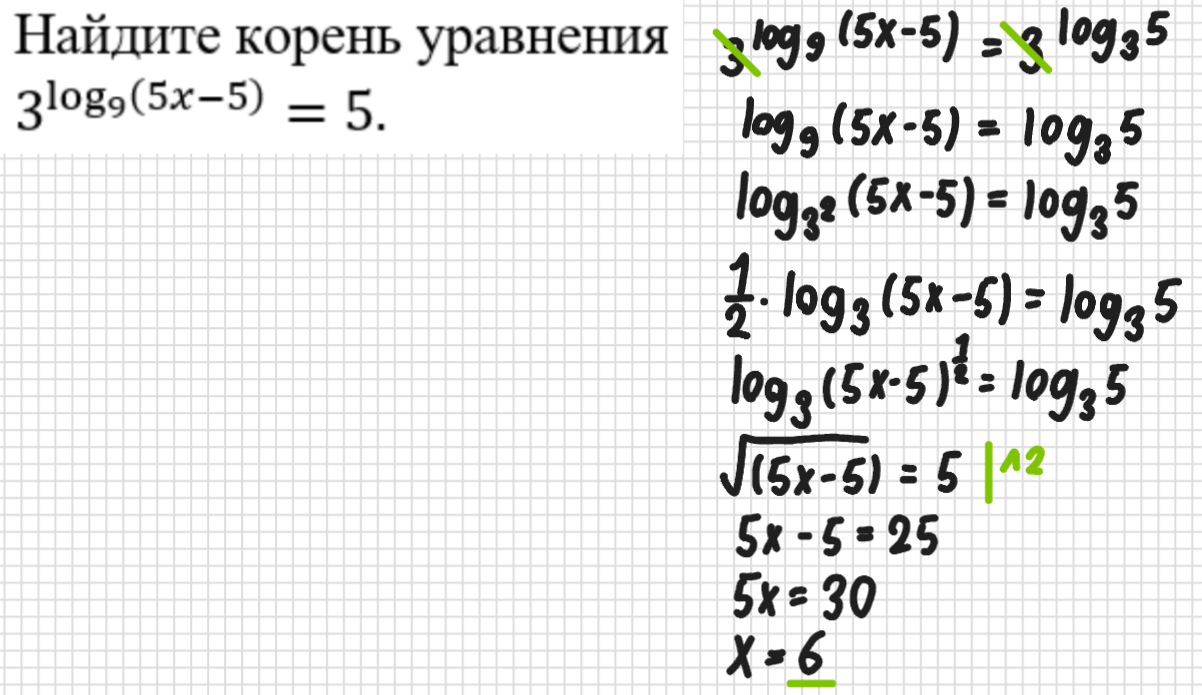 Найдите корень уравнения
3^log₉(5x−5) = 5.
3^log₉(5x-5) = 3^log₃5
log₉(5x-5) = log₃5
log₃²(5x-5) = log₃5
1/2 · log₃(5x-5) = log₃5
log₃(5x-5)^1/2 = log₃5
√(5x-5) = 5 |^2
5x-5=25
5x=30
x=6